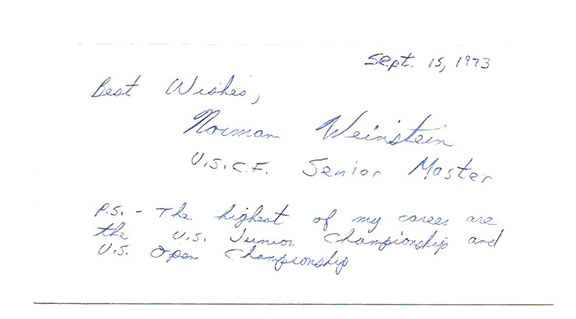 Sept. 15, 1973
Best Wishes,
Norman Weinstein
U.S.C.F. Senior Master
P.S. - The highest of my career are
the U.S. Junior Championship and
U.S. Open Championship